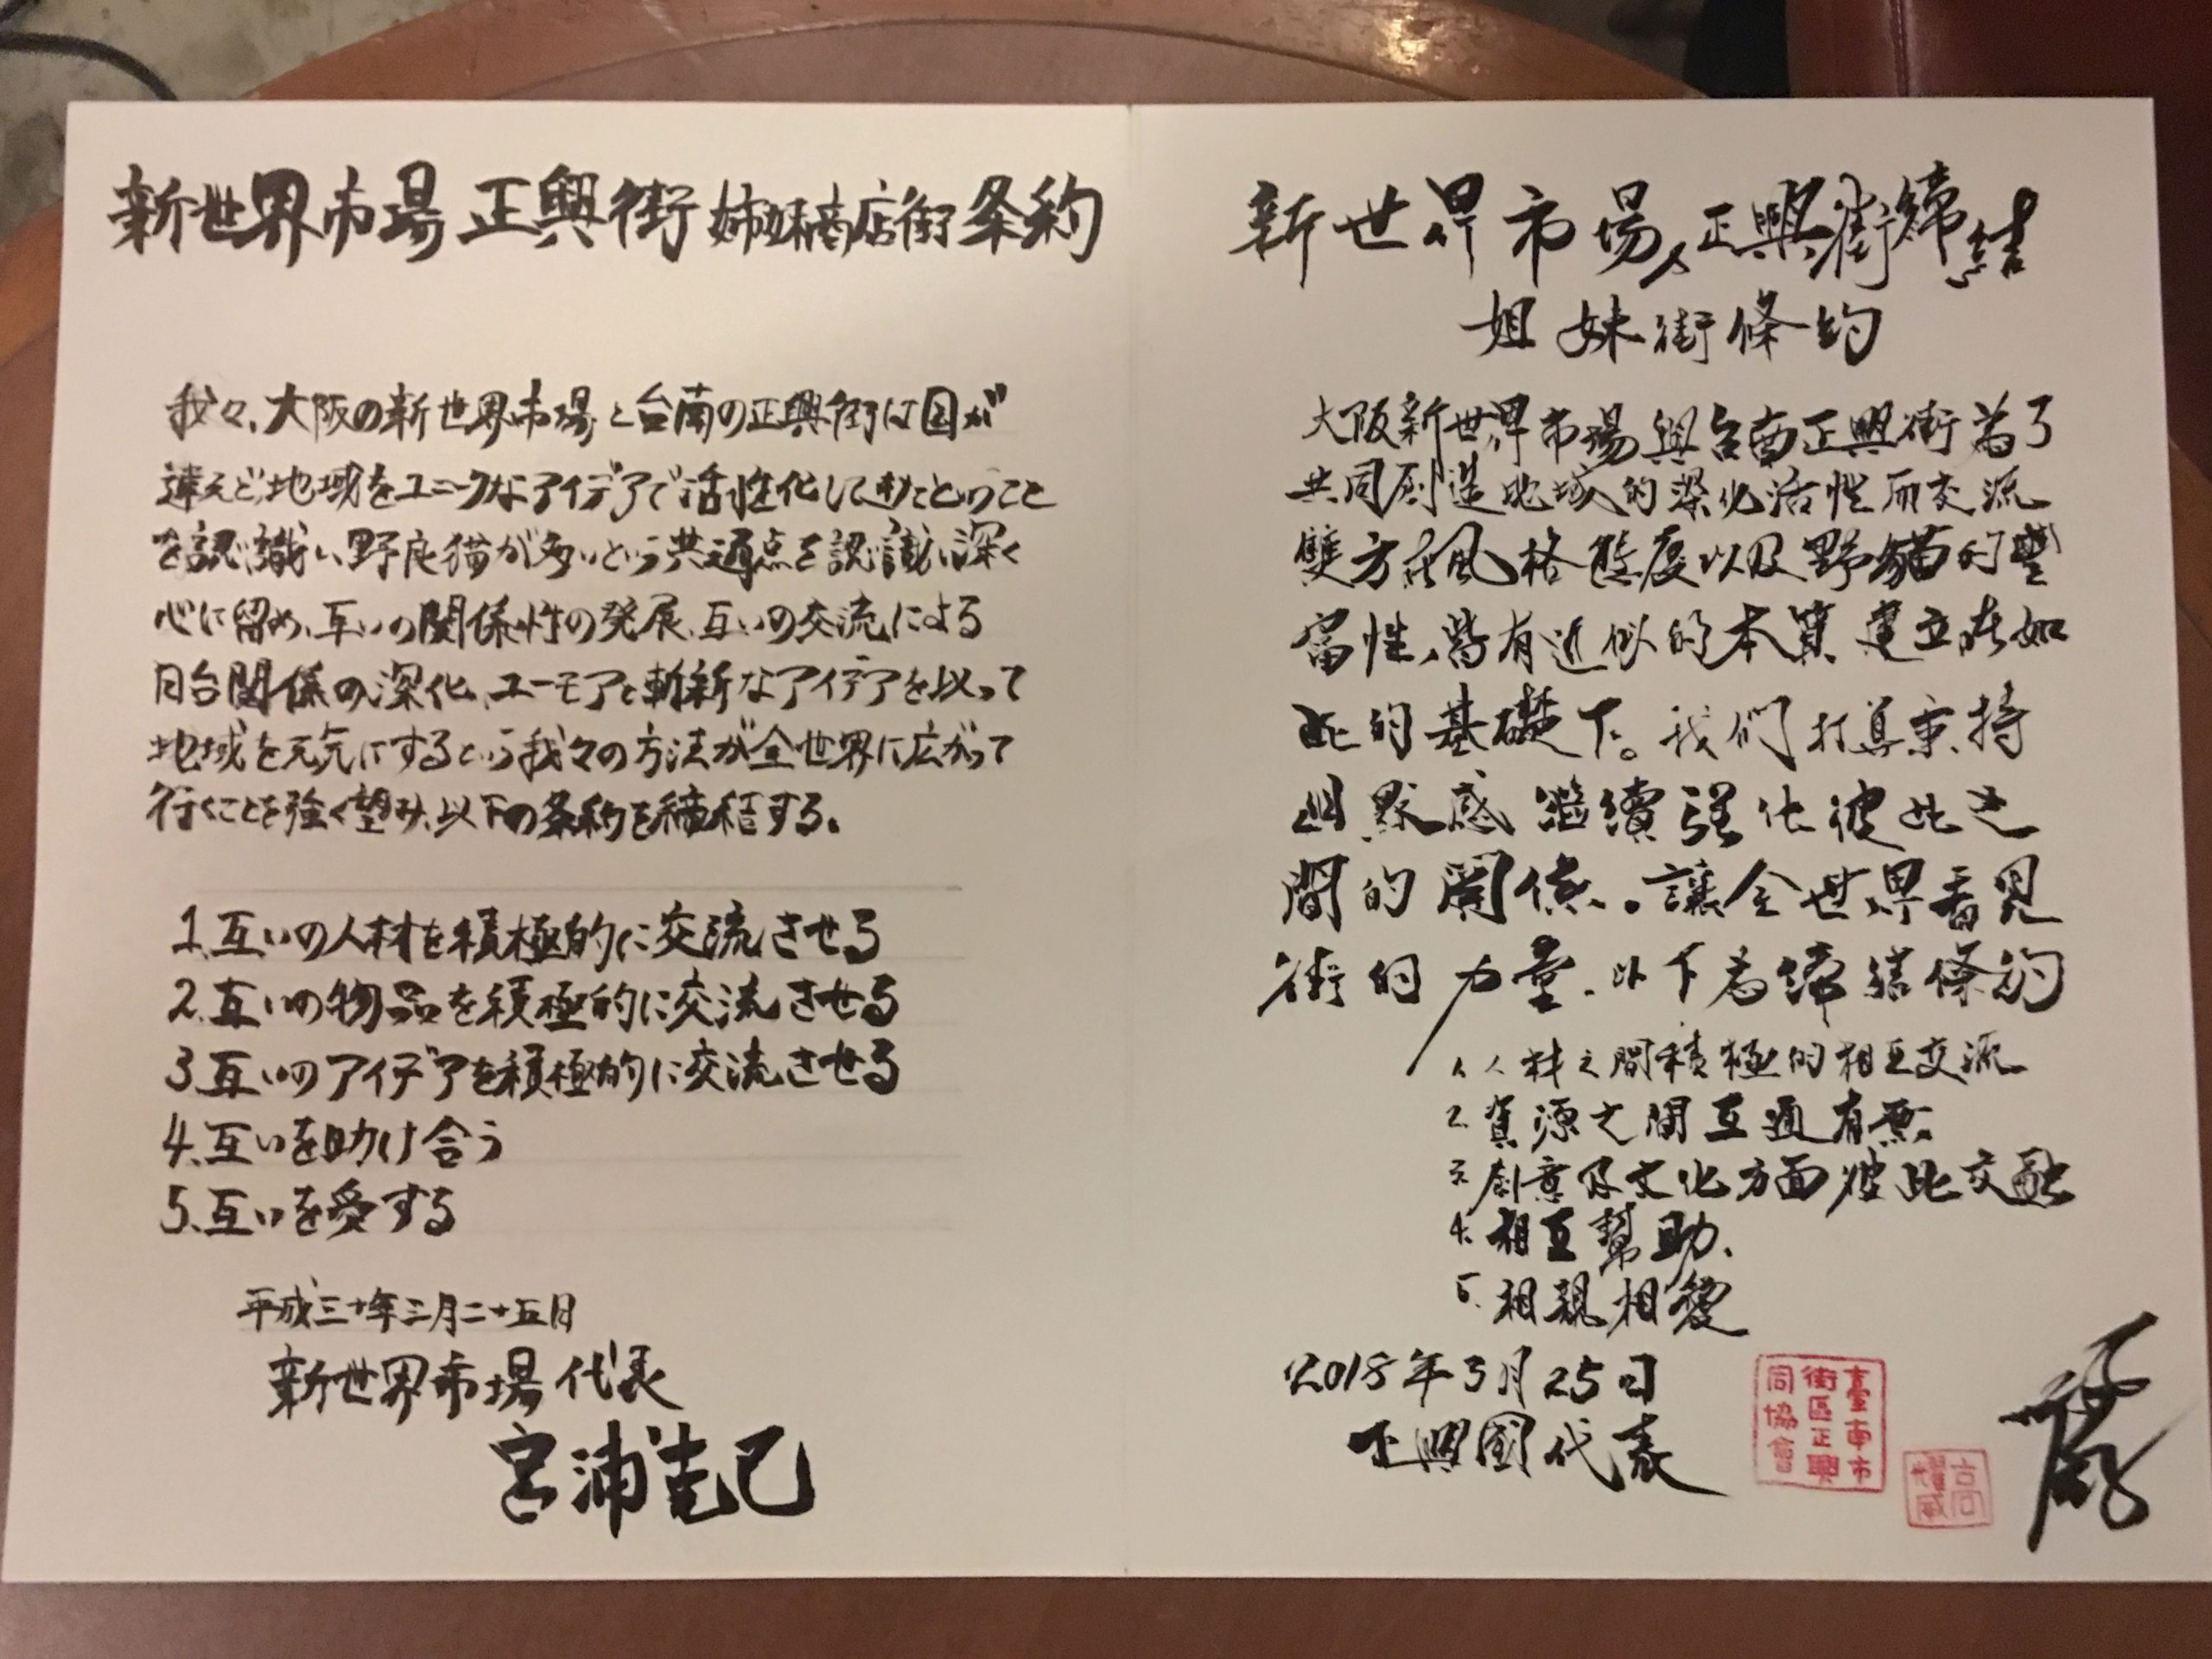 新世界市場 正興街 姉妹商店街 条約
我々、大阪の新世界市場と台南の正興街は国が
違えど、地域をユニークなアイデアで活性化してきたということ
を認識し、野良猫が多いという共通点を認識し、深く
心に留め、互いの関係性の発展、互いの交流による
日台関係の深化、ユーモアと斬新なアイデアを以って
地域を元気にするという我々の方法が全世界に広がって
行くことを強く望み、以下の条約を締結する。
1.互いの人材を積極的に交流させる
2.互いの物品を積極的に交流させる
3.互いのアイデアを積極的に交流させる
4.互いを助け合う
5.互いを愛する
平成三十年三月二十五日
新世界市場 代表
宮浦
新世界市場、正興街締結
姐妹街條約
大阪新世界市場與台南正興街為了
共同創造地域的深化活性而交流
雙方在風格態度以及野貓的豐
富性、皆有近似的本質 建立在如
此的基礎下。我們 秉持
幽默感 繼續強化彼此之
間的關係。讓全世界看見
街的力量.以下為締結條約
1.人材之間積極的相互交流
2.資源之間互通有無
3.創意及文化方面彼此交融
4.相互幫助.
5.相親相愛
2018年3月25日
正興國代表
臺南市
街區正興
同協會
高
耀威